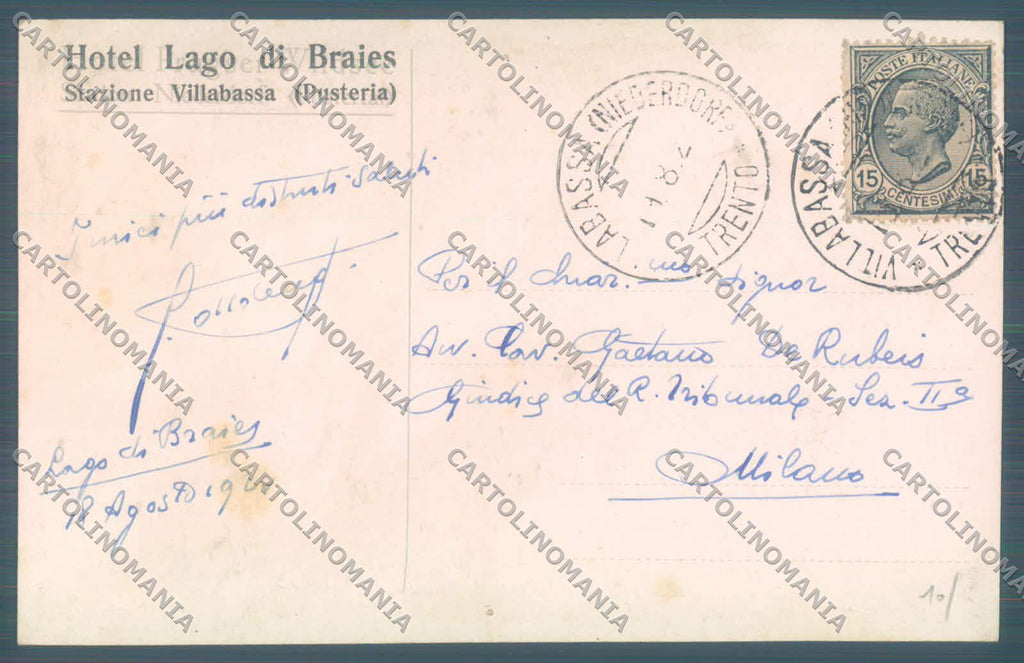 Hotel Lago di Braies
Stazione Villabassa (Pusteria)
VILLABASSA (NIEDERDORF)
TRENTO
POSTE ITALIANE
15 15
CENTESIMI
VILLABASSA
più distinti saluti
Per il Chiar.mo Signor
Avv. Cav. Gaetano De Rubeis
Giudice del R. Tribunale - Sez. IIª
Milano
Lago di Braies
18 Agosto
10/
CARTOLINOMANIA